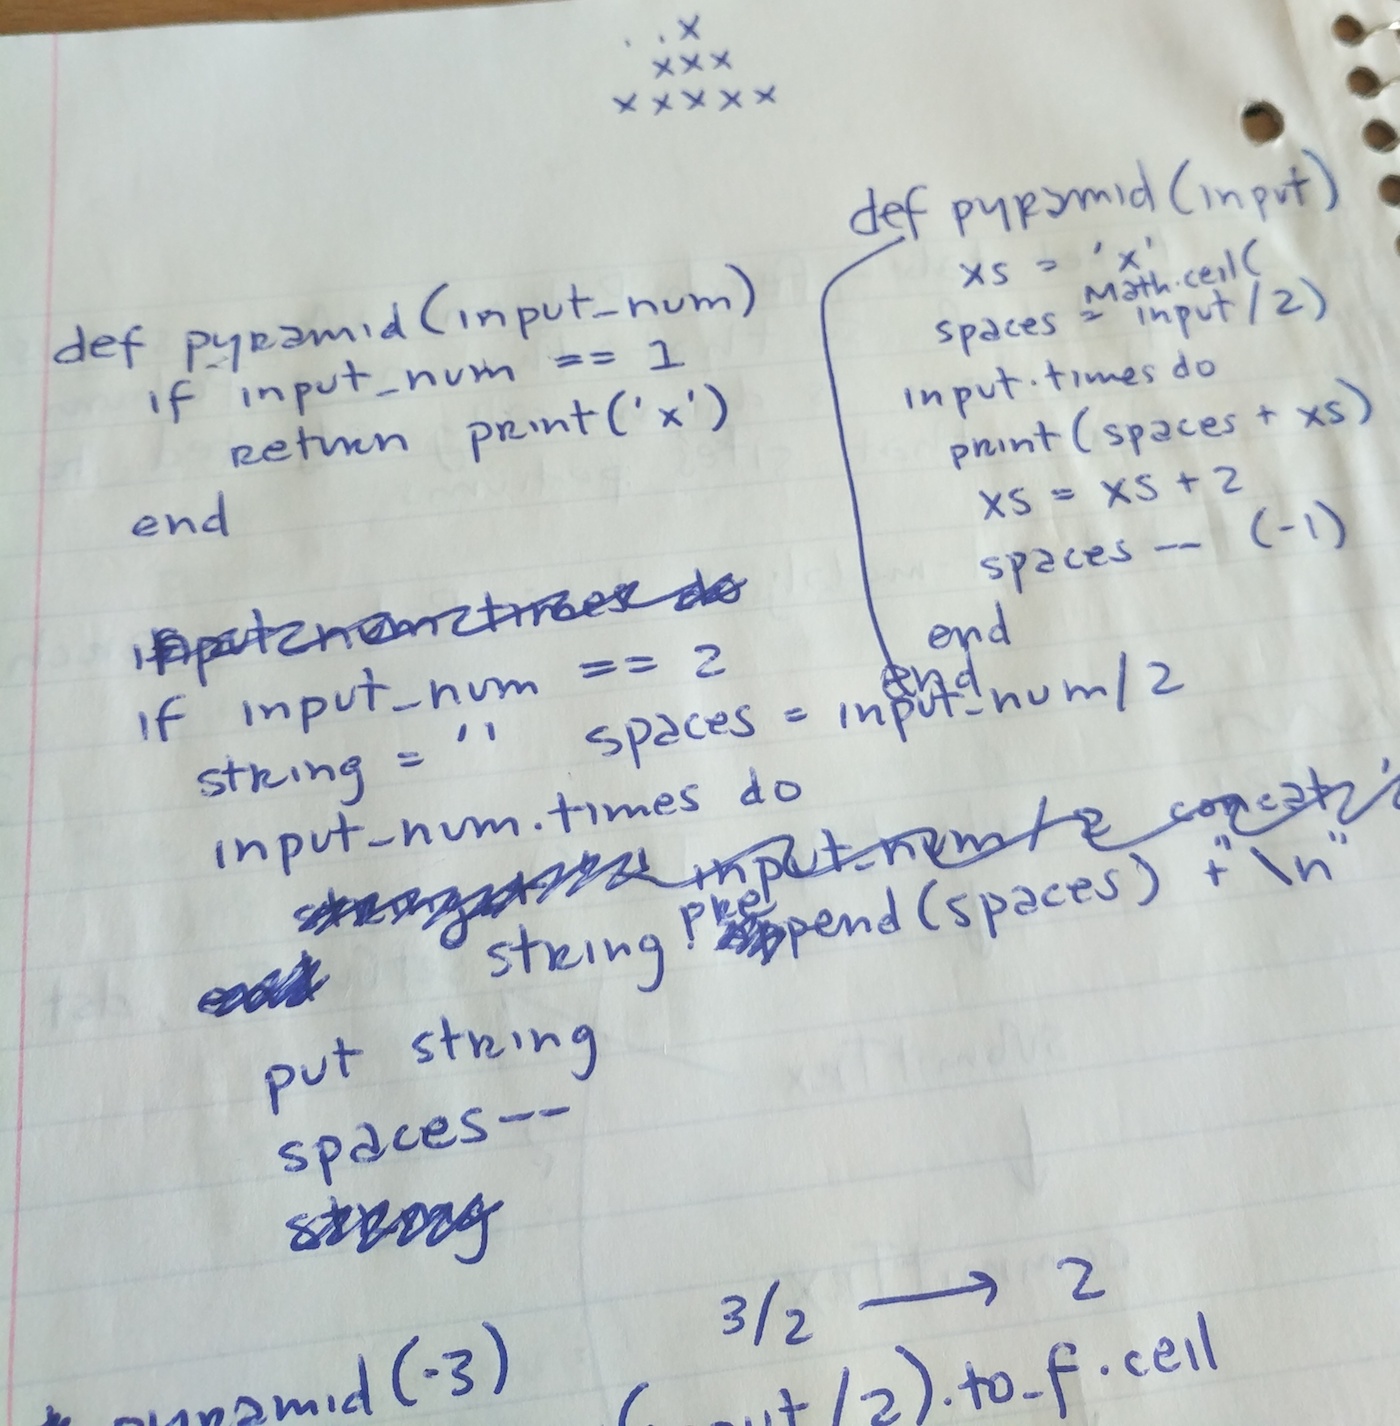 . . x
x x x
x x x x x
def pyramid(input_num)
if input_num == 1
return print('x')
end
if input_num == 2
string = '' spaces = input_num/2
input_num.times do
string.prepend(spaces) + "\n"
put string
spaces--
def pyramid(input)
xs = 'x'
Math.ceil(
spaces = input/2)
input.times do
print(spaces + xs)
xs = xs + 2
spaces -- (-1)
end
end
3/2 → 2
pyramid(-3)
/2).to_f.ceil